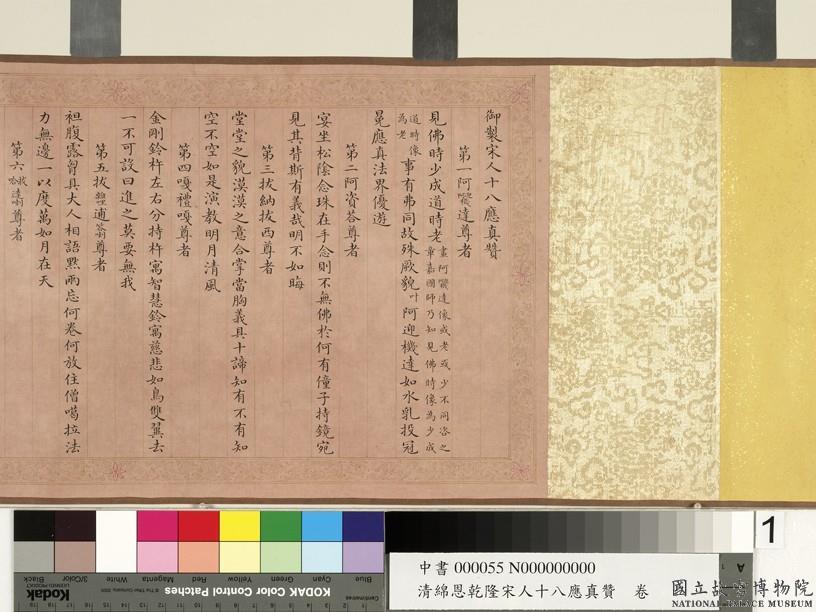 御製宋人十八應真贊
第一阿㘕達尊者
見佛時少成道時老畫阿㘕達像或老或少不同咨之章嘉國師乃知見佛時像為少成道時像為老事有弗同故殊厥貌叶阿迎機達如水乳投冠
冕應真法界優遊
第二阿資荅尊者
宴坐松陰念珠在手念則不無佛於何有僮子持鏡宛
見其背斯有義哉明不如晦
第三拔納拔西尊者
堂堂之貌漠漠之意合掌當胸義具十諦知有不有知
空不空如是演教明月清風
第四嘎禮嘎尊者
金剛鈴杵左右分持杵寓智慧鈴寓慈悲如鳥雙翼去
一不可設曰進之莫要無我
第五拔逋尊者
袒腹露胷具大人相語黙兩忘何卷何放住僧噶拉法
力無邊一以度萬如月在天
第六尊者
Kodak
KODAK Color Control Patches
Black
3/Color
White
Magenta
Red
Yellow
Green
Cyan
Blue
Centimetres
1
A
中書 000055 N000000000
清綿恩乾隆宋人十八應真贊 卷
國立故宮博物院
NATIONAL PALACE MUSEUM